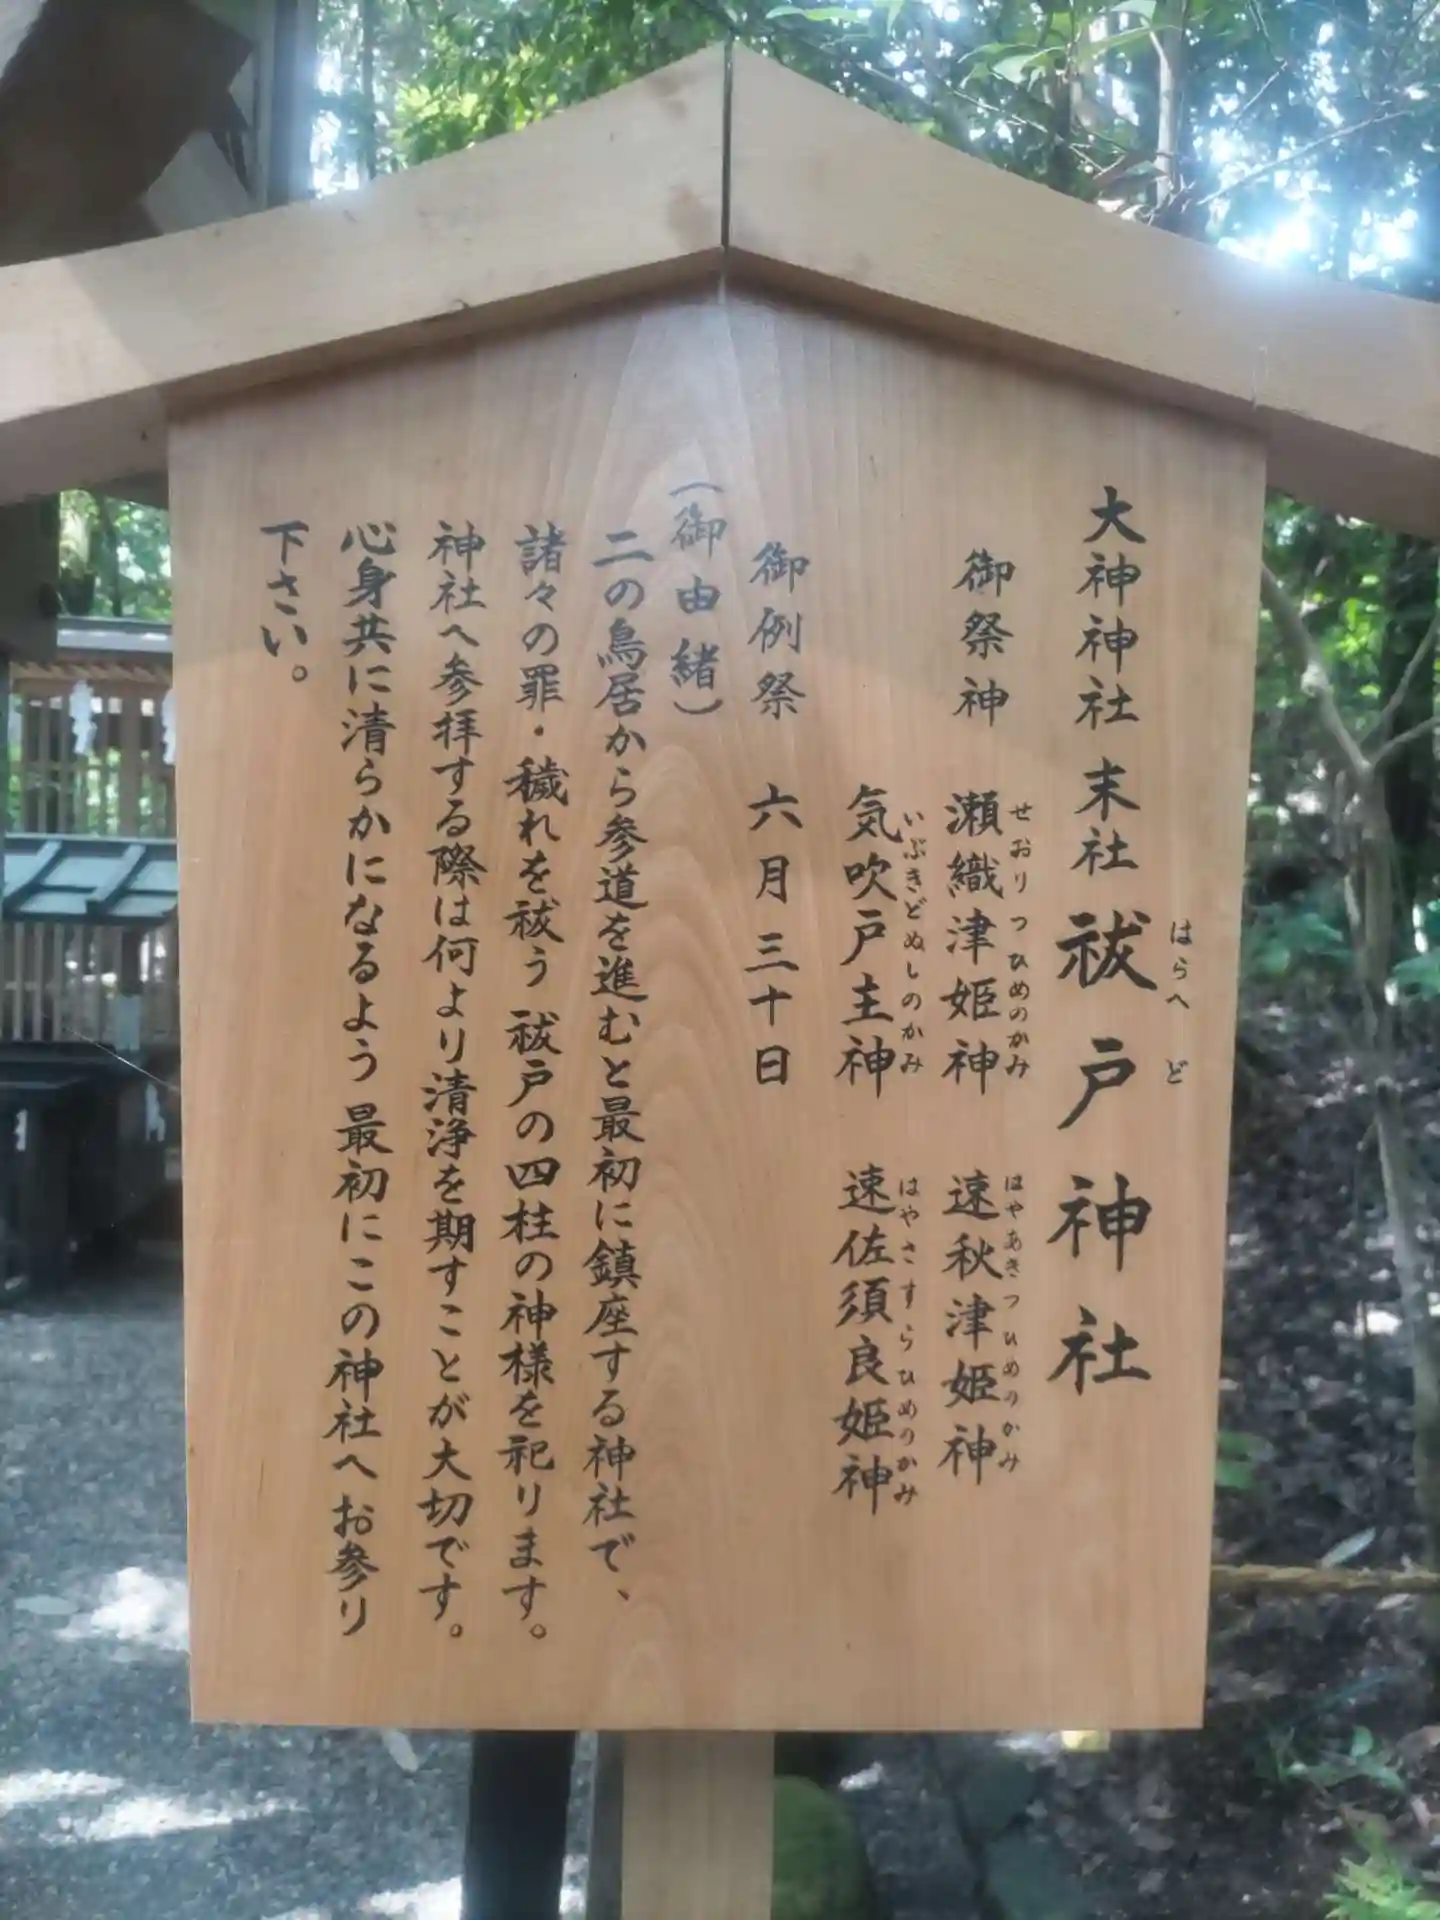 大神神社 末社 祓戸神社
はらへど
御祭神 瀬織津姫神 速秋津姫神
せおりつひめのかみ はやあきつひめのかみ
気吹戸主神 速佐須良姫神
いぶきどぬしのかみ はやさすらひめのかみ
御例祭 六月三十日
(御由緒)
二の鳥居から参道を進むと最初に鎮座する神社で、
諸々の罪・穢れを祓う 祓戸の四柱の神様を祀ります。
神社へ参拝する際は何より清浄を期すことが大切です。
心身共に清らかになるよう 最初にこの神社へお参り
下さい。